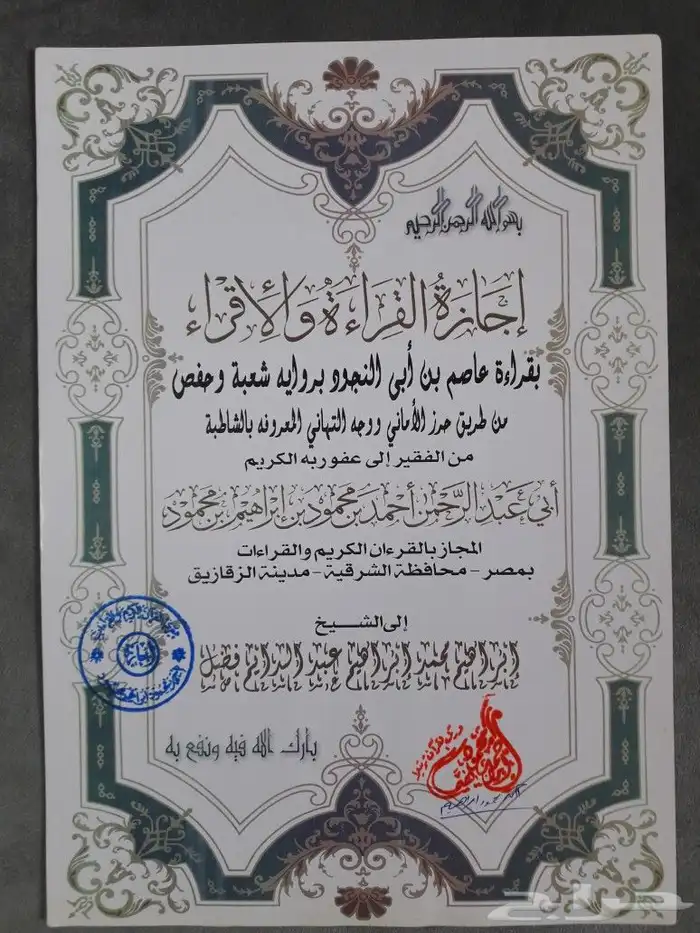 بسم الله الرحمن الرحيم
إِجَازَةُ القِرَاءَةِ وَالإِقْرَاء
بقراءة عاصم بن أبي النجود بروايه شعبة وحفص
من طريق حرز الأماني ووجه التهاني المعروفه بالشاطبة
من الفقير إلى عفوربه الكريم
أبي عَبد الرَّحمن أحمد بن محمود بن إبراهيم بن محمود
المجاز بالقرءان الكريم والقراءات
بمصر - محافظة الشرقية - مدينة الزقازيق
إلى الشيخ
ابراهيم محمد ابراهيم عبد الدايم فضل
بارك الله فيه ونفع به
حراج